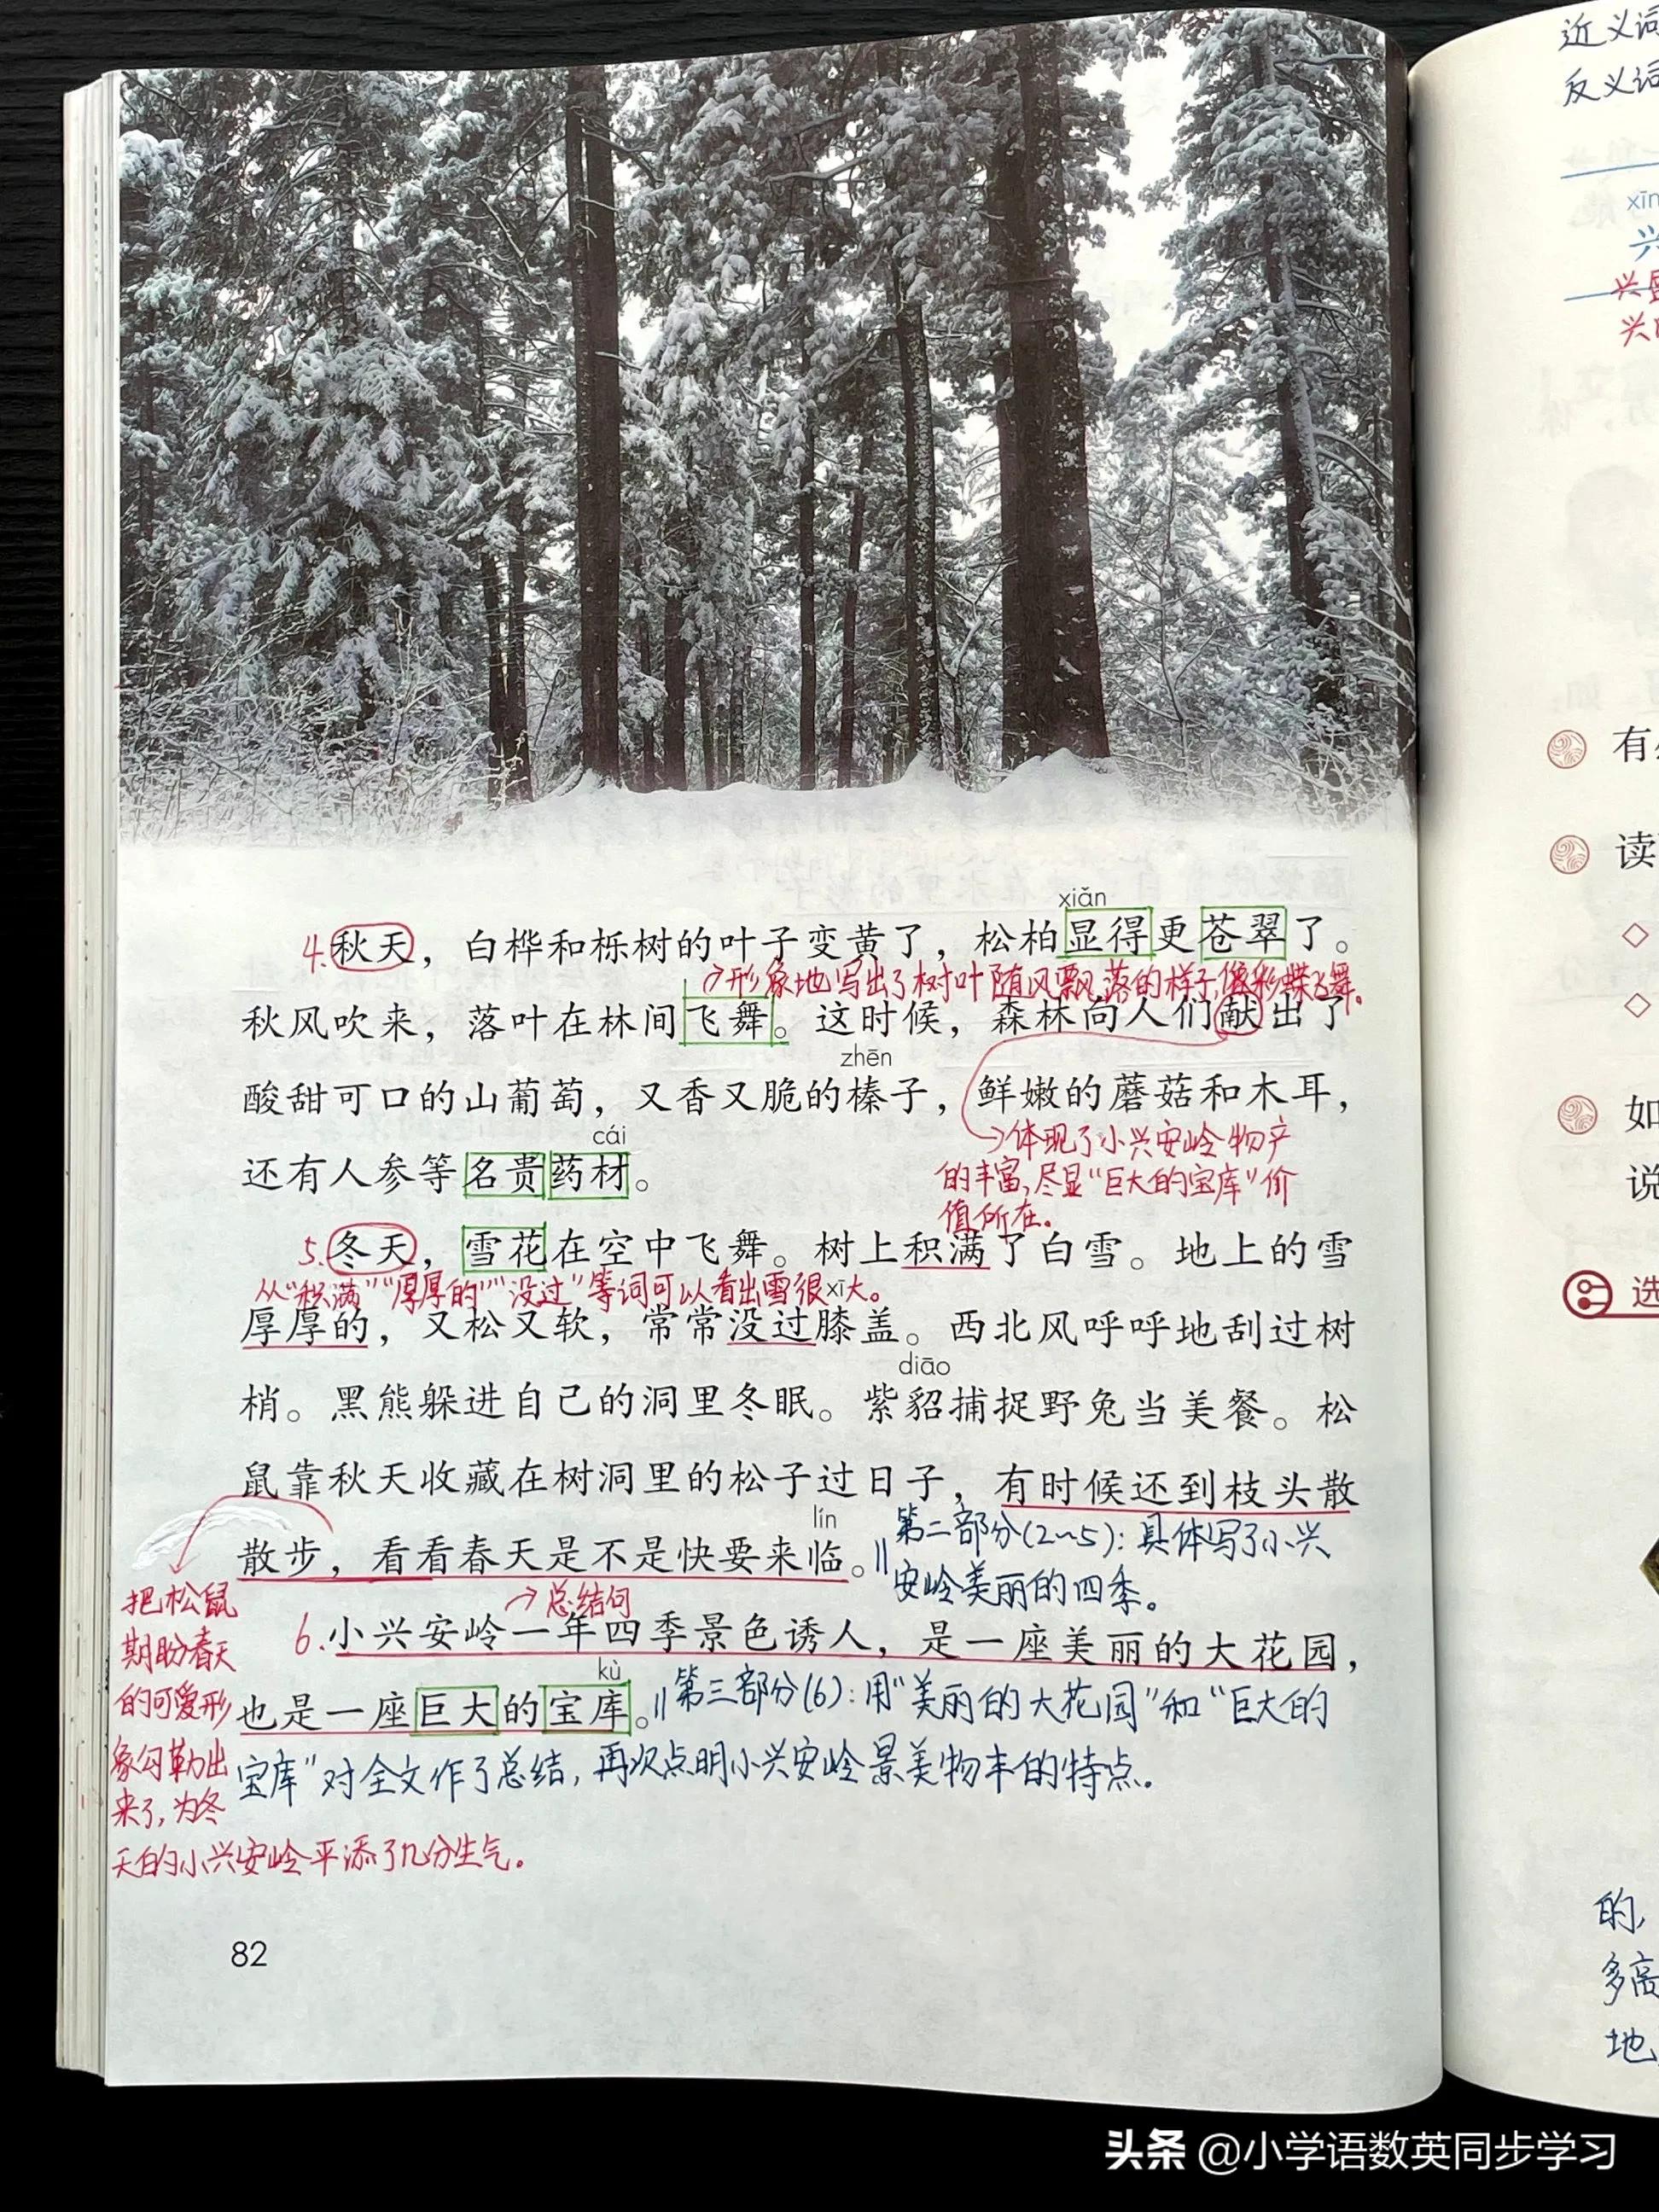 xiǎn
4.秋天，白桦和栎树的叶子变黄了，松柏显得更苍翠了。
形象地写出了树叶随风飘落的样子，像彩蝶飞舞。
秋风吹来，落叶在林间飞舞。这时候，森林向人们献出了
zhēn
酸甜可口的山葡萄，又香又脆的榛子，鲜嫩的蘑菇和木耳，
cái
体现了小兴安岭物产
还有人参等名贵药材。
的丰富，尽显“巨大的宝库”价
值所在。
5.冬天，雪花在空中飞舞。树上积满了白雪。地上的雪
从“积满”“厚厚的”“没过”等词可以看出雪很大。
xī
厚厚的，又松又软，常常没过膝盖。西北风呼呼地刮过树
diāo
梢。黑熊躲进自己的洞里冬眠。紫貂捕捉野兔当美餐。松
鼠靠秋天收藏在树洞里的松子过日子，有时候还到枝头散
lín
散步，看看春天是不是快要来临。
第二部分(2~5)：具体写了小兴
安岭美丽的四季。
总结句
6.小兴安岭一年四季景色诱人，是一座美丽的大花园，
kù
也是一座巨大的宝库。
第三部分(6)：用“美丽的大花园”和“巨大的
宝库”对全文作了总结，再次点明小兴安岭景美物丰的特点。
把松鼠
期盼春天
的可爱形
象勾勒出
来了，为冬
天的小兴安岭平添了几分生气。
82
近义词
反义词
xīn
兴
有
读
如
说
选
的，
多高
地
头条 @小学语数英同步学习